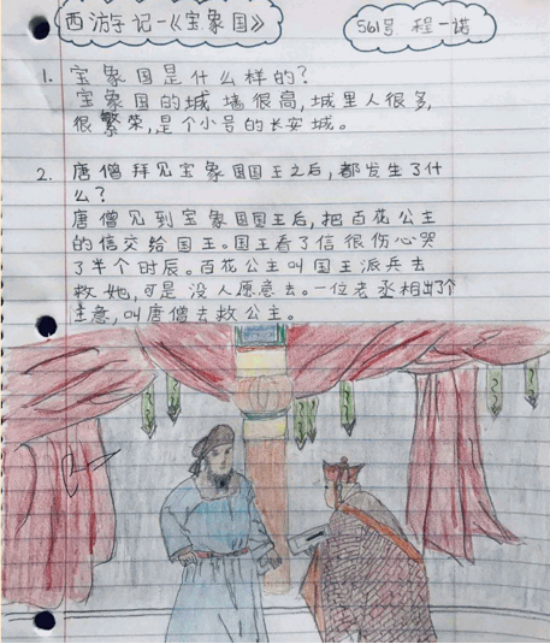 西游记-《宝象国》
561号 程一诺
1. 宝象国是什么样的?
宝象国的城墙很高,城里人很多,
很繁荣,是个小号的长安城。
2. 唐僧拜见宝象国国王之后,都发生了什
么?
唐僧见到宝象国国王后,把百花公主
的信交给国王。国王看了信很伤心哭
了半个时辰。百花公主叫国王派兵去
救她,可是没人愿意去。一位老丞相出了个
主意,叫唐僧去救公主。